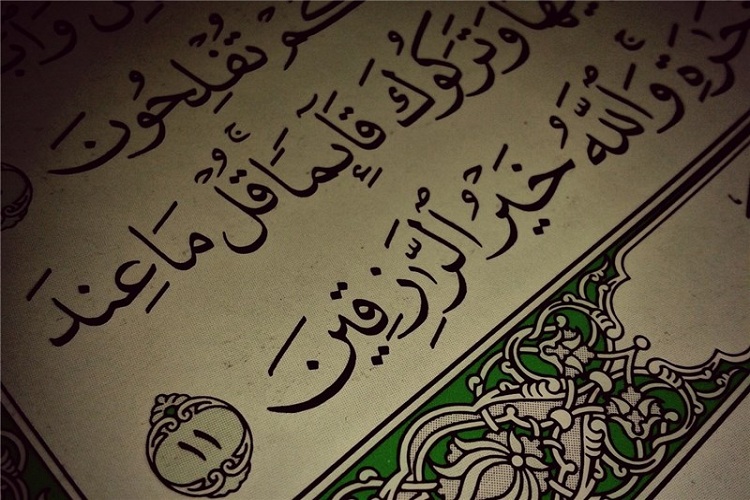 تُفْلِحُونَ
وَتَرَكُوكَ قَآئِمًا قُلْ مَا عِندَ
وَٱللَّهُ خَيْرُ ٱلرَّٰزِقِينَ
١١